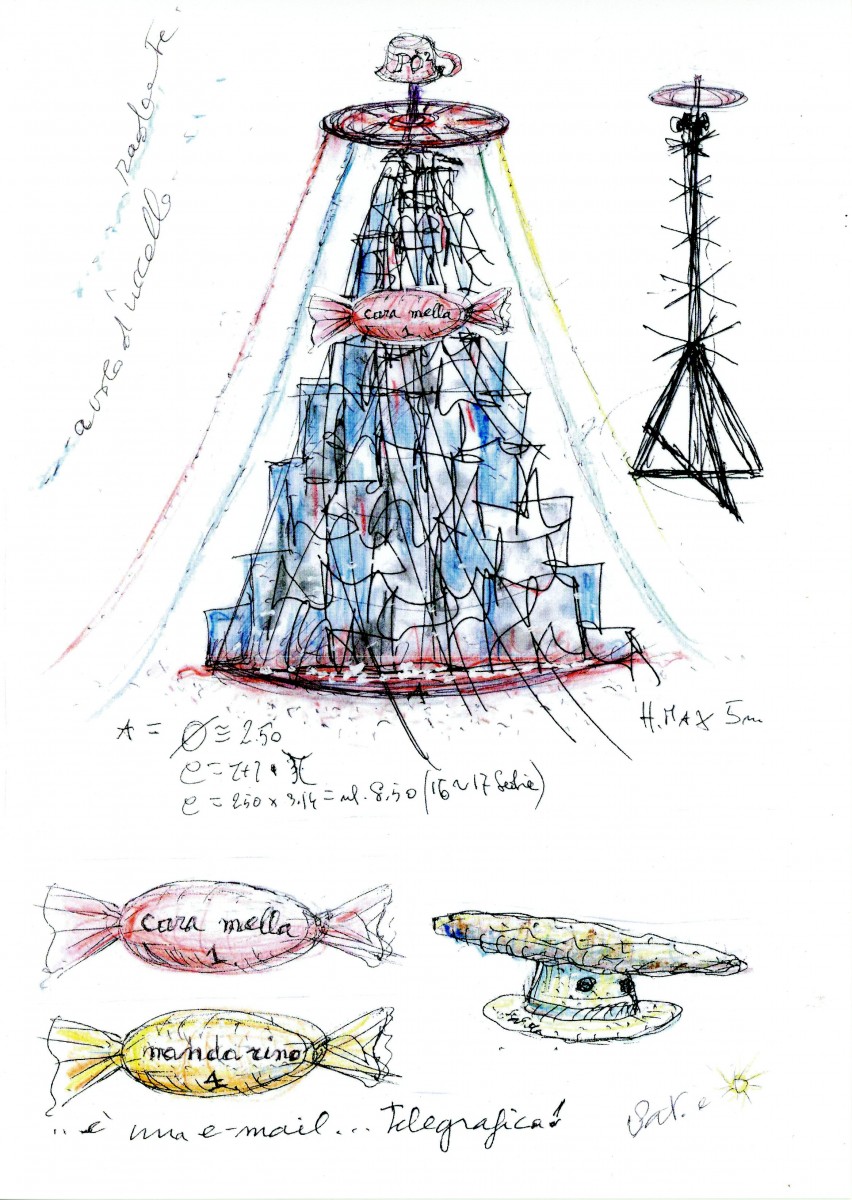 PO²
a volo d'uccello...
cara mella
1
A
H. MAX 5m
A = Ø ≅ 2.50
C = 250 x 3.14 = ml. 8,50 (16 ~ 17 Sedie)
cara mella
1
mandarino
4
..è una e-mail... Telegrafica!